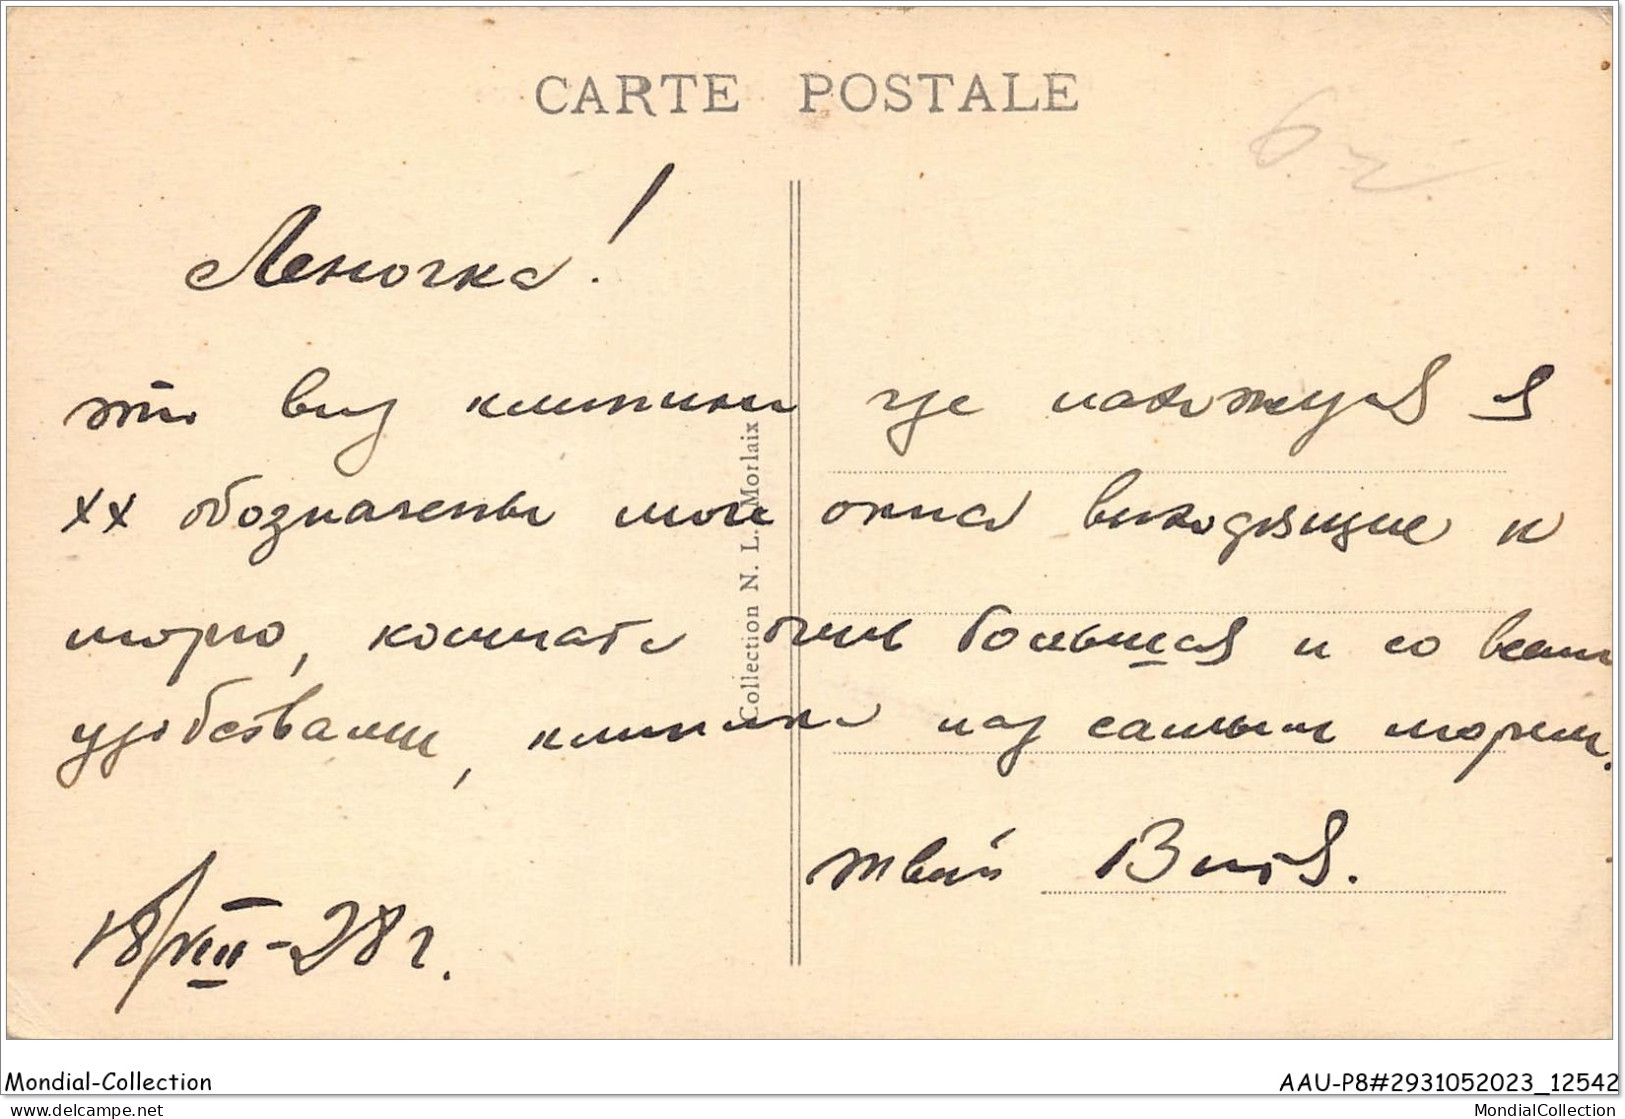 CARTE POSTALE
Леночка!
это вид клиники где нахожусь я
XX обозначены мои окна выходящие к
морю, комната очень большая и со всеми
удобствами, клиника над самым морем.
твой Витя.
18/VIII-28 г.
Collection N. L. Morlaix
Mondial-Collection
AAU-P8#2931052023_12542
www.delcampe.net
MondialCollection